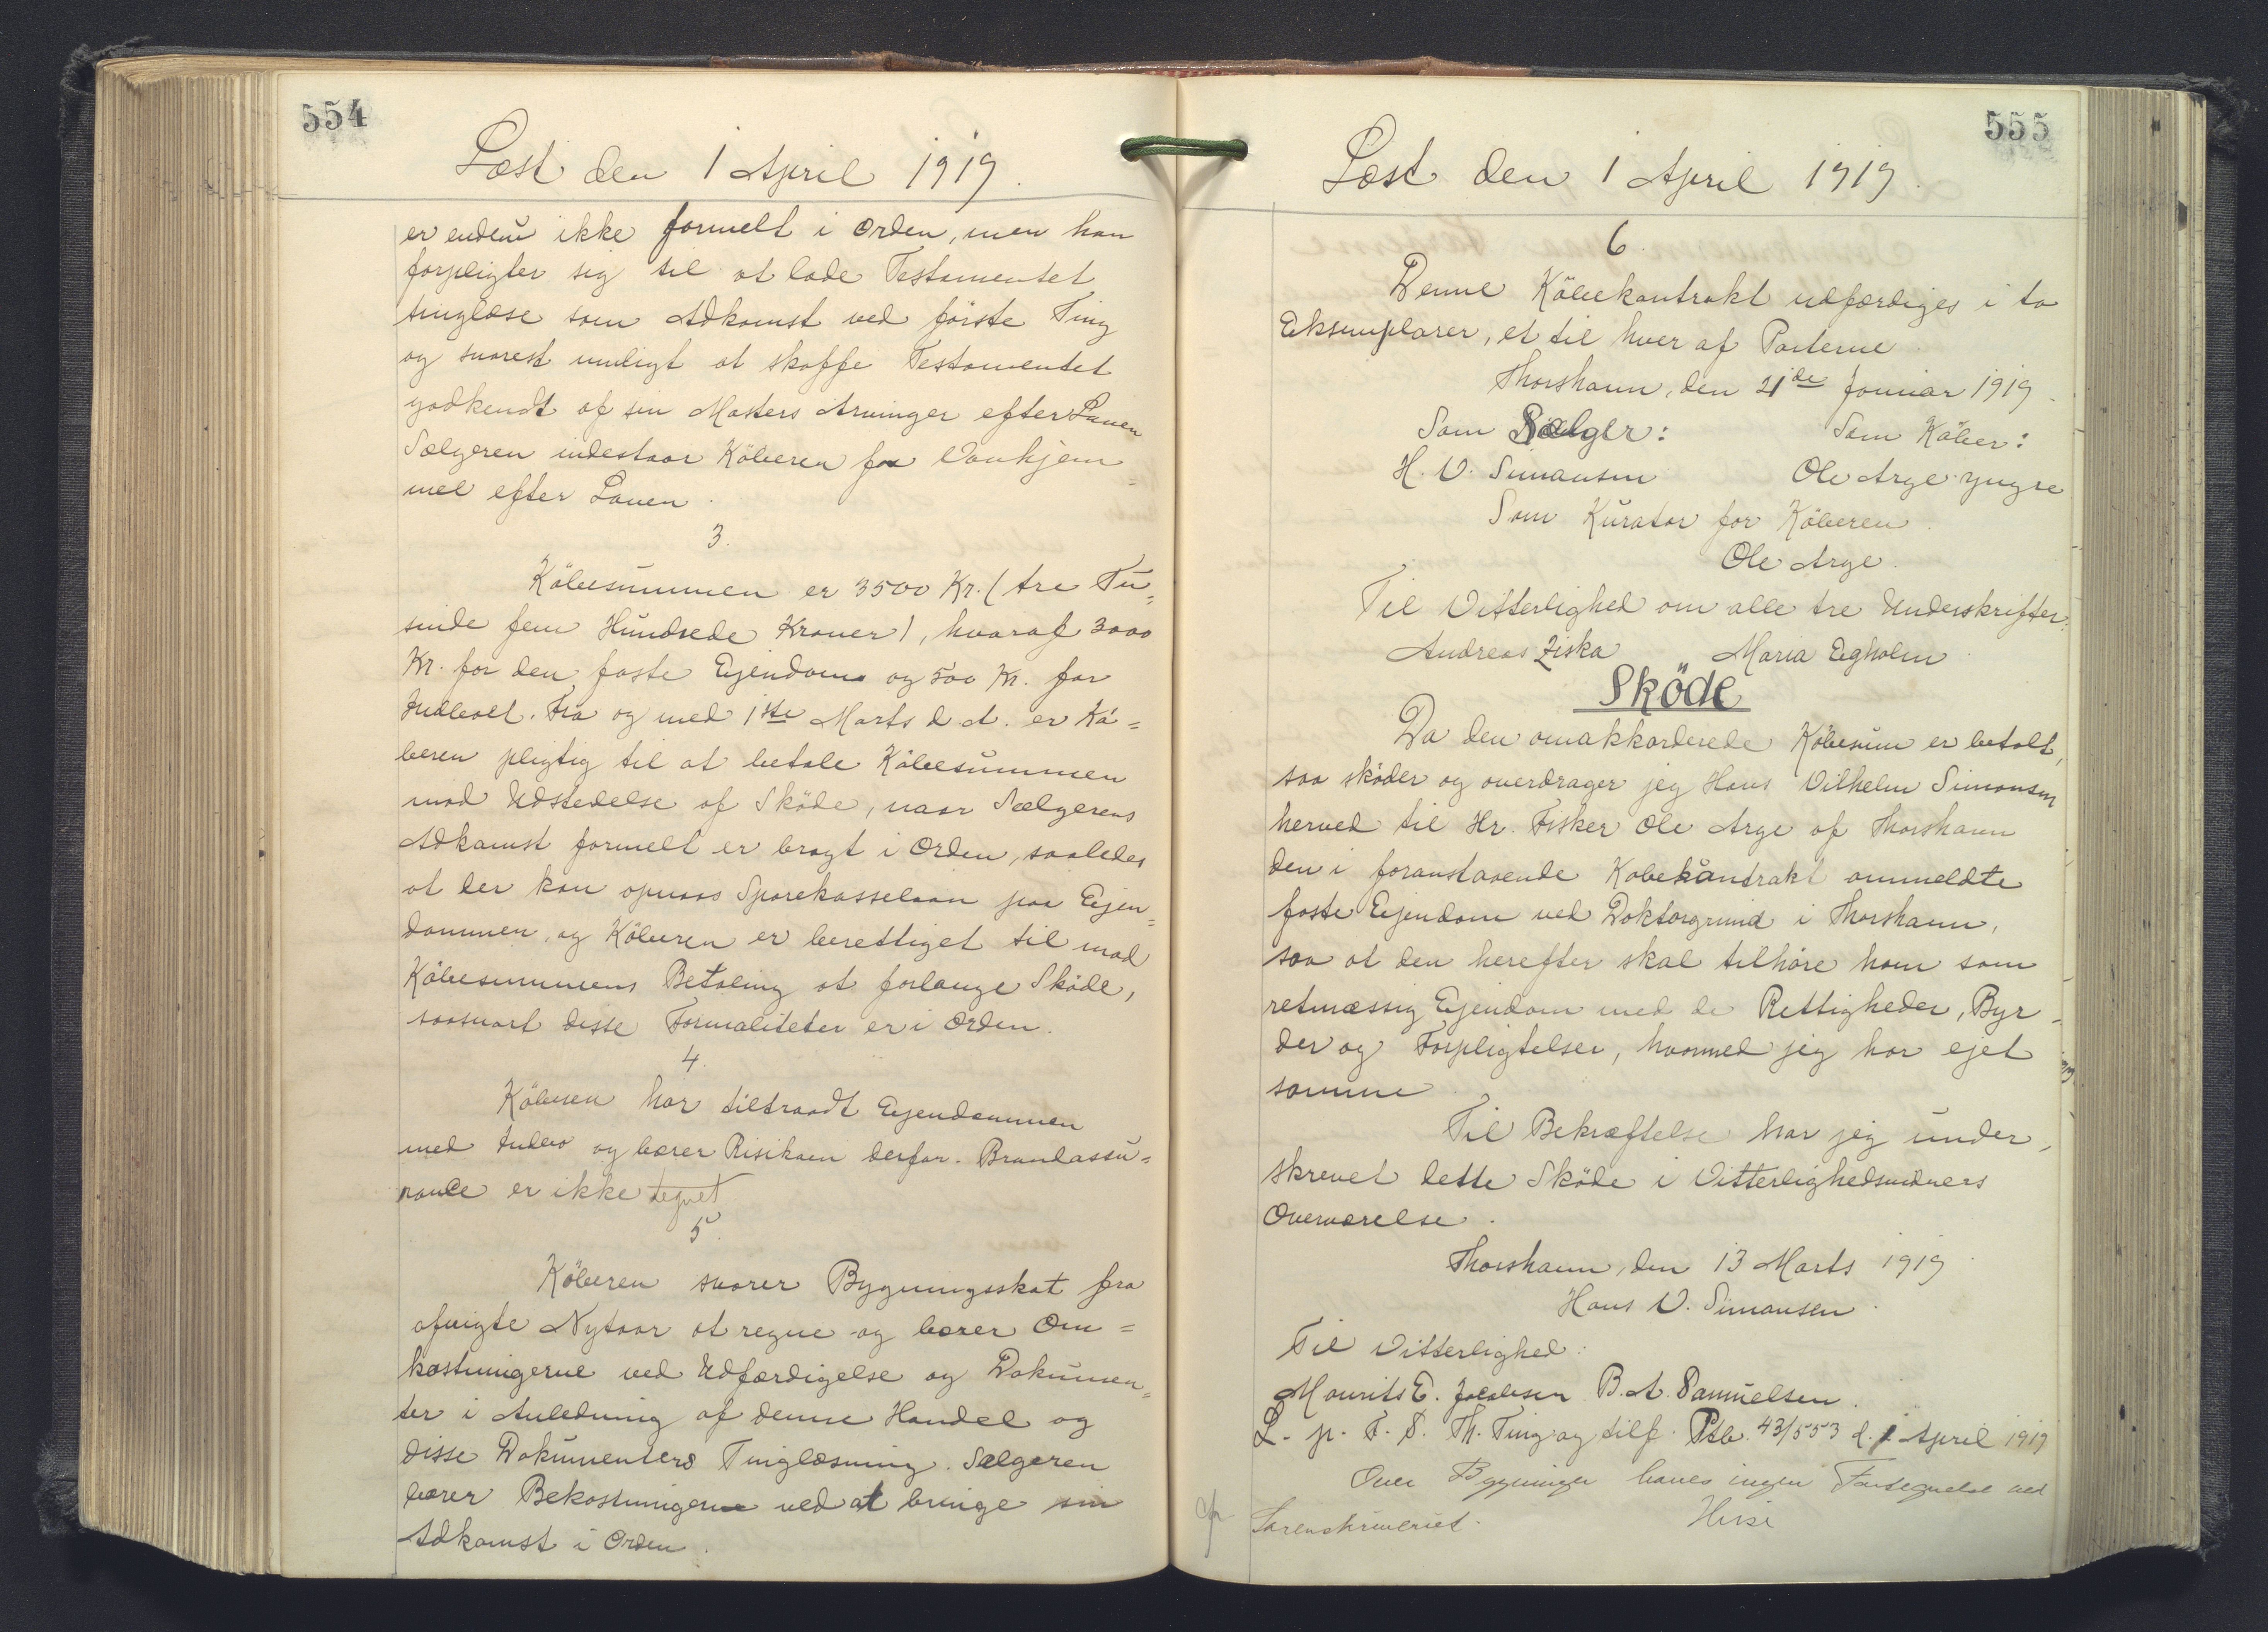 554
Læst den 1 April 1919.
er endnu ikke formelt i Orden, men han
forpligter sig til at lade Testamentet
tinglæse som Adkomst ved förste Ting
og snarest muligt at skaffe Testamentet
godkendt af sin Mosters Arvinger efter Loven
Sælgeren indestaar Köberen for Vanhjem=
mel efter Loven.
3.
Köbesummen er 3500 Kr. (tre Tu=
sinde fem Hundrede Kroner), hvoraf 3000
Kr. for den faste Ejendom og 500 Kr. for
Indboet. Fra og med 1ste Marts d. A. er Kö=
beren pligtig til at betale Köbesummen
mod Udstedelse af Sköde, naar Sælgerens
Adkomst formelt er bragt i Orden, saaledes
at der kan opnaas Sparekasselaan paa Ejen=
dommen, og Köberen er berettiget til mod
Köbesummens Betaling at forlange Sköde,
saasnart disse Formaliteter er i Orden.
4.
Köberen har tiltraadt Ejendommen
med Indbo og bærer Risikoen derfor. Brandassu=
rance er ikke tegnet
5.
Köberen svarer Bygningsskat fra
afvigte Nytaar at regne og bærer Om=
kostningerne ved Udfærdigelse og Dokumen=
ter i Anledning af denne Handel og
disse Dokumenters Tinglæsning. Sælgeren
bærer Bekostningerne ved at bringe sin
Adkomst i Orden.
555
Læst den 1 April 1919.
6.
Denne Köbekontrakt udfærdiges i to
Eksemplarer, et til hver af Parterne.
Thorshavn, den 21de Januar 1919.
Som Sælger: Som Köber:
H. V. Simonsen Ole Arge yngre
Som Kurator for Köberen.
Ole Arge.
Til Vitterlighed om alle tre Underskrifter:
Andreas Ziska Maria Egholm
Sköde
Da den omakkorderede Köbesum er betalt,
saa sköder og overdrager jeg Hans Vilhelm Simonsen
herved til Hr. Fisker Ole Arge af Thorshavn
den i foranstaaende Kobekontrakt ommeldte
faste Ejendom ved Doktorgrund i Thorshavn,
saa at den herefter skal tilhöre ham som
retmæssig Ejendom med de Rettigheder, Byr=
der og Forpligtelser, hvormed jeg har ejet
samme.
Til Bekræftelse har jeg under=
skrevet dette Sköde i Vitterlighedsvidners
Overværelse.
Thorshavn, den 13 Marts 1919
Hans V. Simonsen.
Til Vitterlighed:
Mourits E. Jacobsen B. A. Samuelsen.
L. p. F. S. Th. Ting og tilf. Ptb. 43/553 d. 1 April 1919
Over Bygninger haves ingen Fortegnelse ved
Sorenskriveriet.